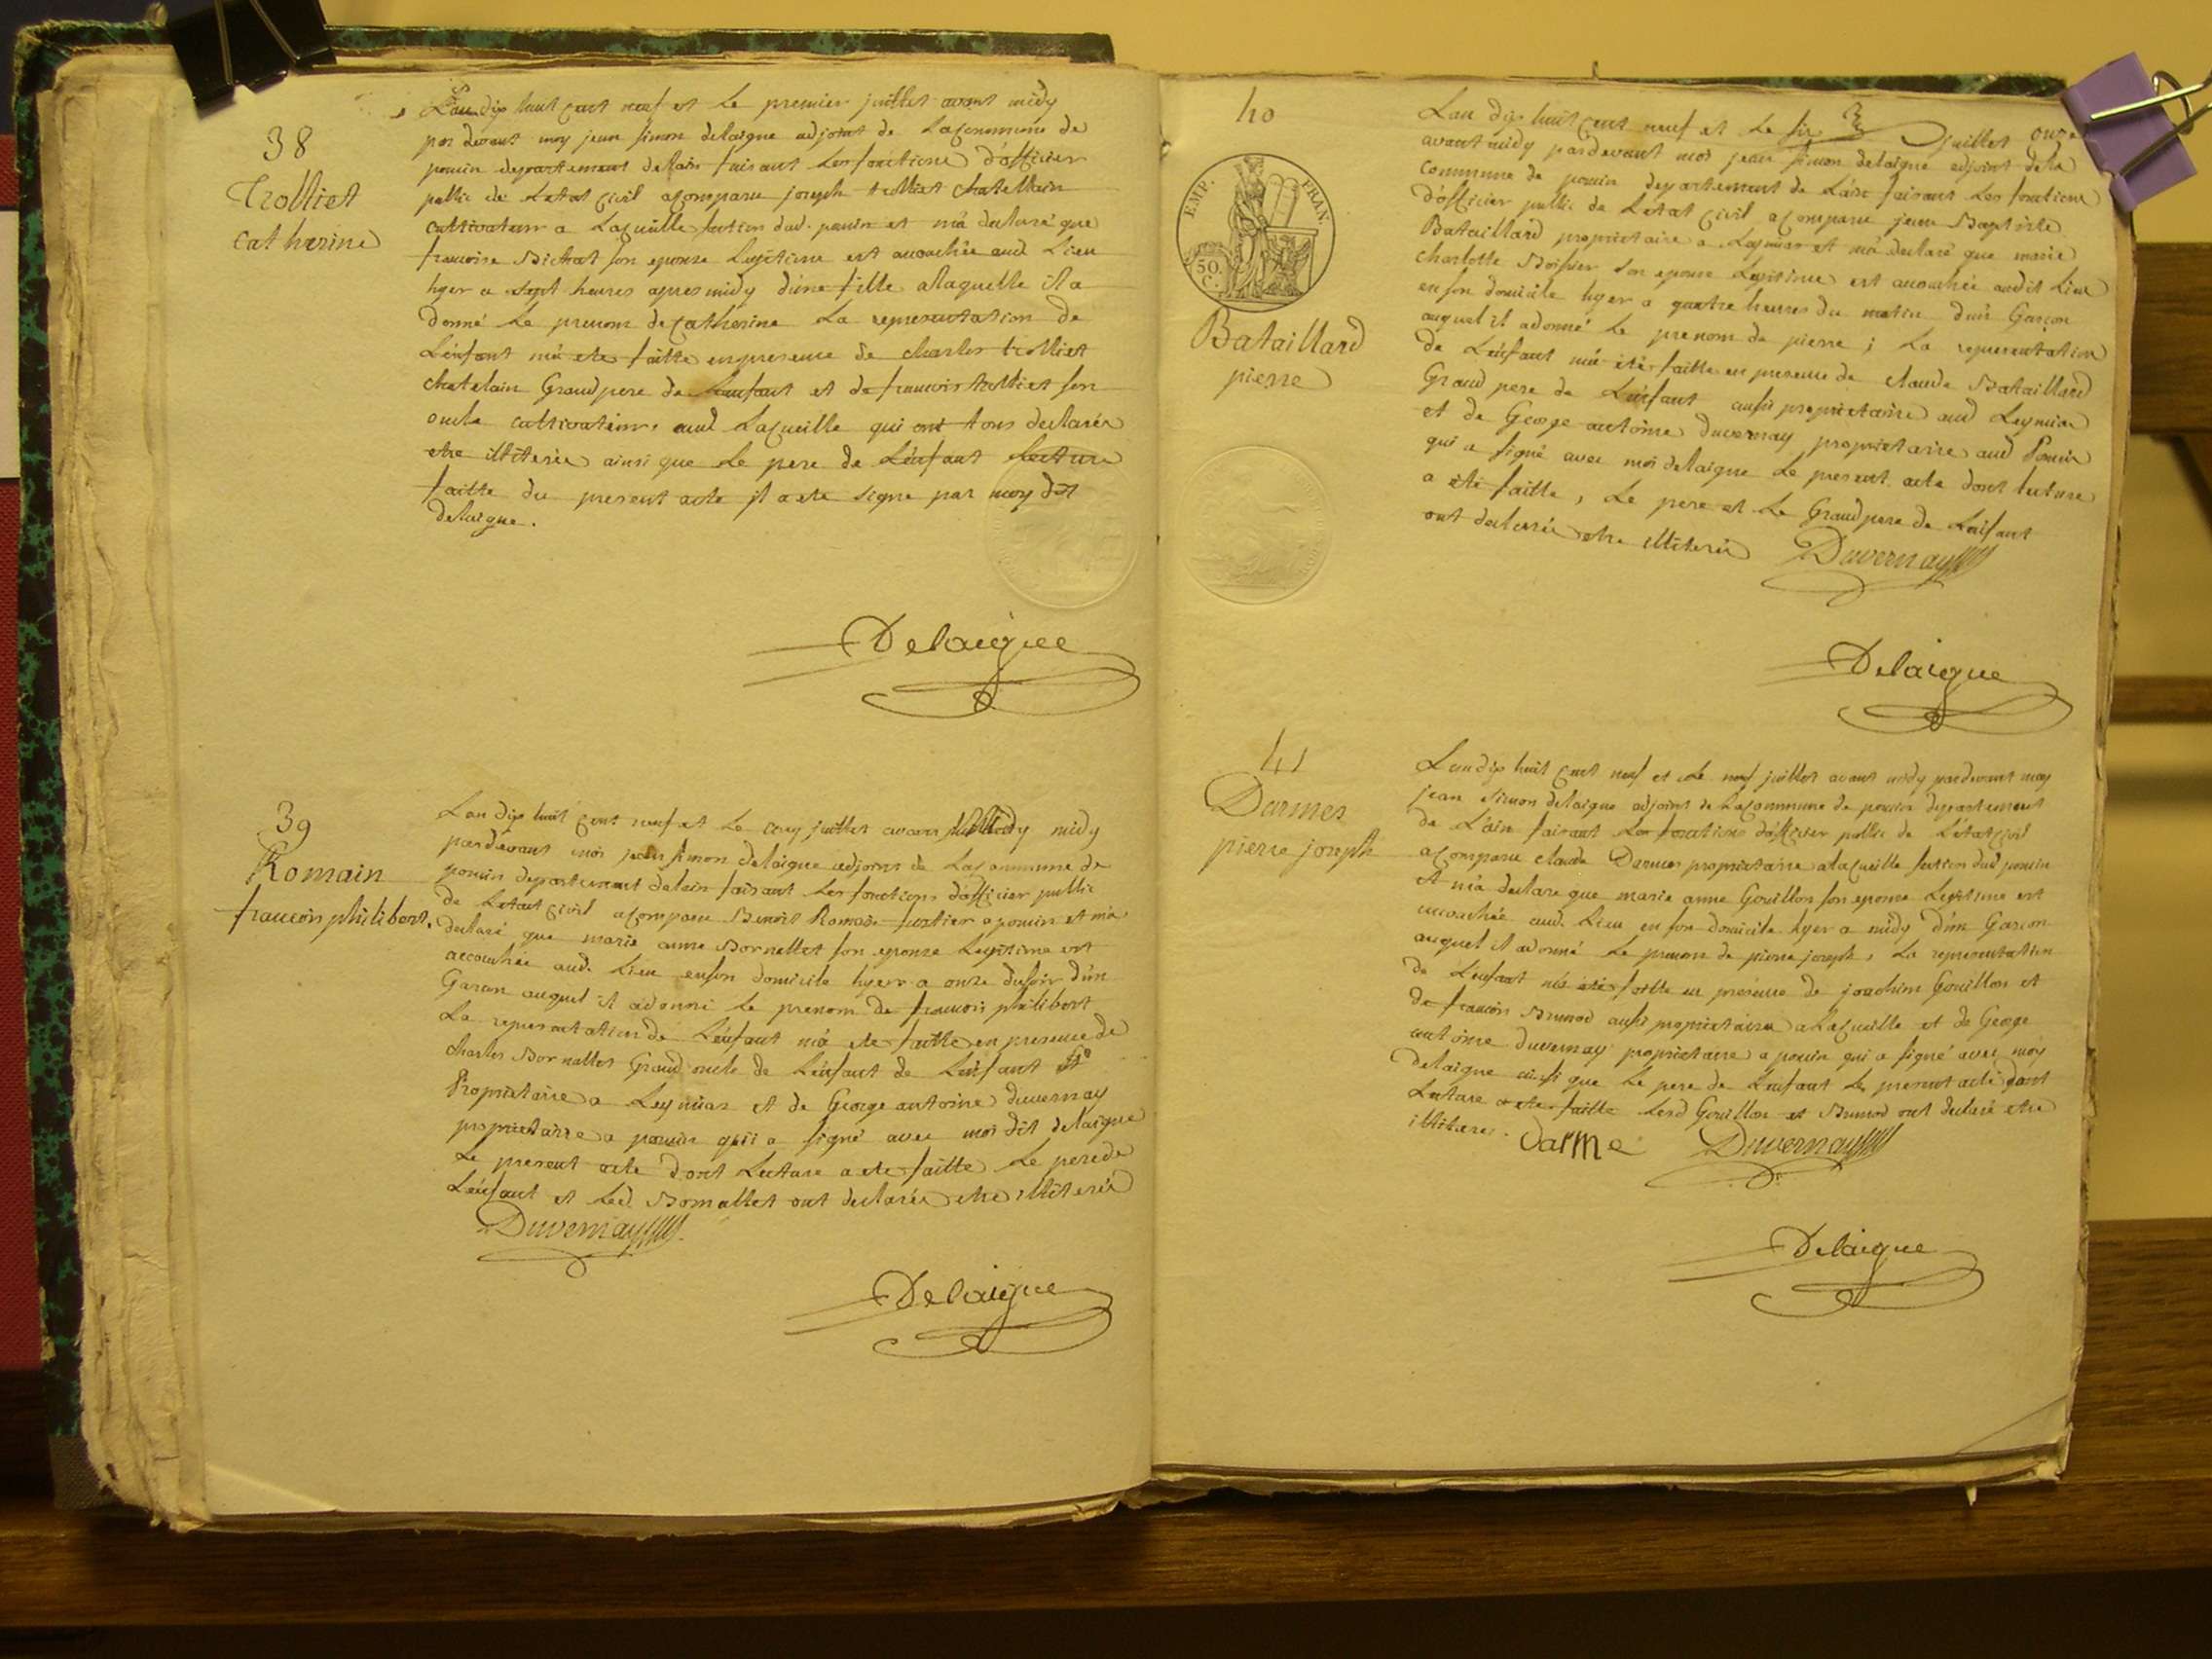 38
Trolliet
catherine
Lan dix huit cent neuf et le premier juillet avant midy
par devant moy jean simon delaigne adjoint de la commune de
pouin departement de lain faisant les fonctions d'officier
public de letat civil a comparu joseph trolliet chatellain
cultivateur a lacuille section dud. pouin et m'a declaré que
francoise Bichat son epouse legitime est accouchée aud lieu
hyer a sept heures apres midy d'une fille a laquelle il a
donné le prenom de catherine la representation de
l'enfant m'a ete faitte en presence de charles trolliet
chatelain Grand pere de l'enfant et de francois trolliet son
oncle cultivateurs aud lacueille qui ont tous declarés
etre illiterés ainsi que le pere de l'enfant lecture
faitte du present acte il a ete signe par moy dit
delaigue.
Delaigue
39
Romain
francois philibert.
Lan dix huit cent neuf et le cinq juillet avant midy
pardevant moi jean simon delaigue adjoint de la commune de
pouin departement de lain faisant les fonctions d'officier public
de letat civil a comparu Benoit Romain a pouin et m'a
declaré que marie anne Bornallet son epouse legitime est
accouchée aud. lieu en son domicile hyer a onze du soir d'un
Garcon auquel il a donné le prenom de francois philibert
La representation de l'enfant m'a ete faitte en presence de
charles Bornallet Grand oncle de l'enfant de l'enfant et
Proprietaire a Leymiar et de George antoine duvernay
proprietaire a pouin qui a signé avec moi dit delaigue
le present acte dont lecture a ete faitte le pere de
l'enfant et led Bornallet ont declarés etre illiterés
Duvernay
Delaigue
40
EMP. FRAN.
50.
C.
Bataillard
pierre
Lan dix huit cent neuf et le six juillet onze
avant midy pardevant moi jean simon delaigne adjoint de la
commune de pouin departement de l'ain faisant les fonctions
d'officier public de letat civil a comparu jean Baptiste
Bataillard proprietaire a Leymiar et m'a declaré que marie
charlotte Boissier son epouse legitime est accouchée audit lieu
en son domicile hyer a quatre heures du matin d'un Garçon
auquel il a donné le prenom de pierre ; la representation
de l'enfant m'a été faitte en presence de claude Bataillard
Grand pere de l'enfant aussi proprietaire aud Leymiar
et de George antoine duvernay proprietaire aud Pouin
qui a signé avec moi delaigue le present acte dont lecture
a été faitte, le pere et le Grand pere de l'enfant
ont declarés etre illiterés Duvernay
Delaigue
41
Darmes
pierre joseph
Lan dix huit cent neuf et le neuf juillet avant midy pardevant moy
jean simon delaigue adjoint de la commune de pouin departement
de l'ain faisant les fonctions d'officier public de l'état civil
a comparu claude Darmes proprietaire a lacueille section dud pouin
et m'a declare que marie anne Gouillon son epouse legitime est
accouchée aud. lieu en son domicile hyer a midy d'un Garcon
auquel il a donné le prenom de pierre joseph, la representation
de l'enfant m'a été faitte en presence de joachim Gouillon et
de francois Brunod aussi proprietaires a lacueille et de George
antoine duvernay proprietaire a pouin qui a signé avec moy
delaigue ainsi que le pere de l'enfant le present acte dont
lecture a ete faitte lesd Gouillon et Brunod ont declaré etre
illiteres. Darme Duvernay
Delaigue